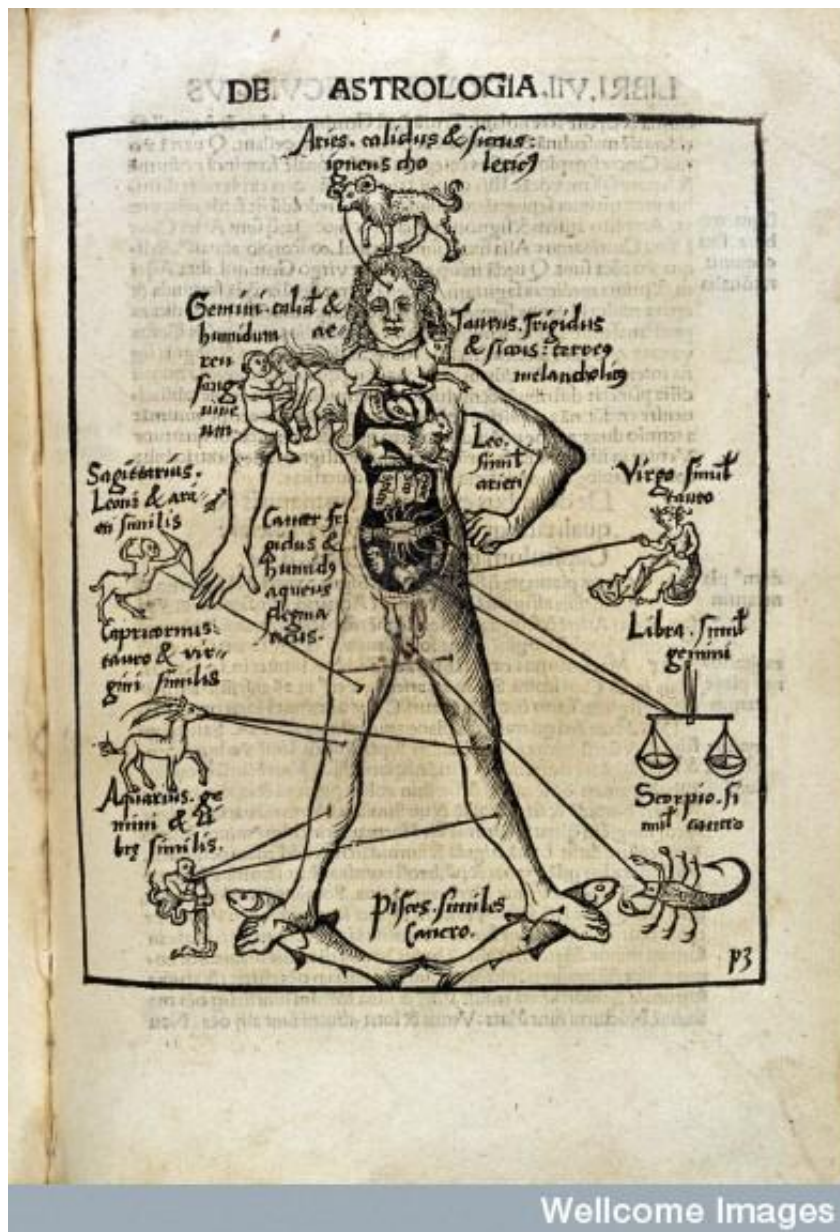 DE ASTROLOGIA.
Aries. calidus & siccus:
igneus cho lericꝰ
Gemini. calid &
humidum ae-
reu
sang
uine
um
Taurus. frigidus
& siccus: terreꝰ
melancholicꝰ
Leo.
simil
arieti
Sagittarius.
Leoni & ari-
eti similis
Cancer fri
gidus &
humidꝰ
aqueus
flegma
ticus.
Virgo. simil
tauro
Capricornus:
tauro & vir-
gini similis
Libra. simil
gemini
Aquarius. ge
mini & li
brę similis.
Scorpio. si
mil cancro
Pisces. similes
Cancro.
p3
Wellcome Images